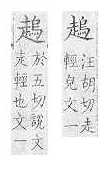 汪胡切走
輕皃文一
於五切說文
走輕也文一